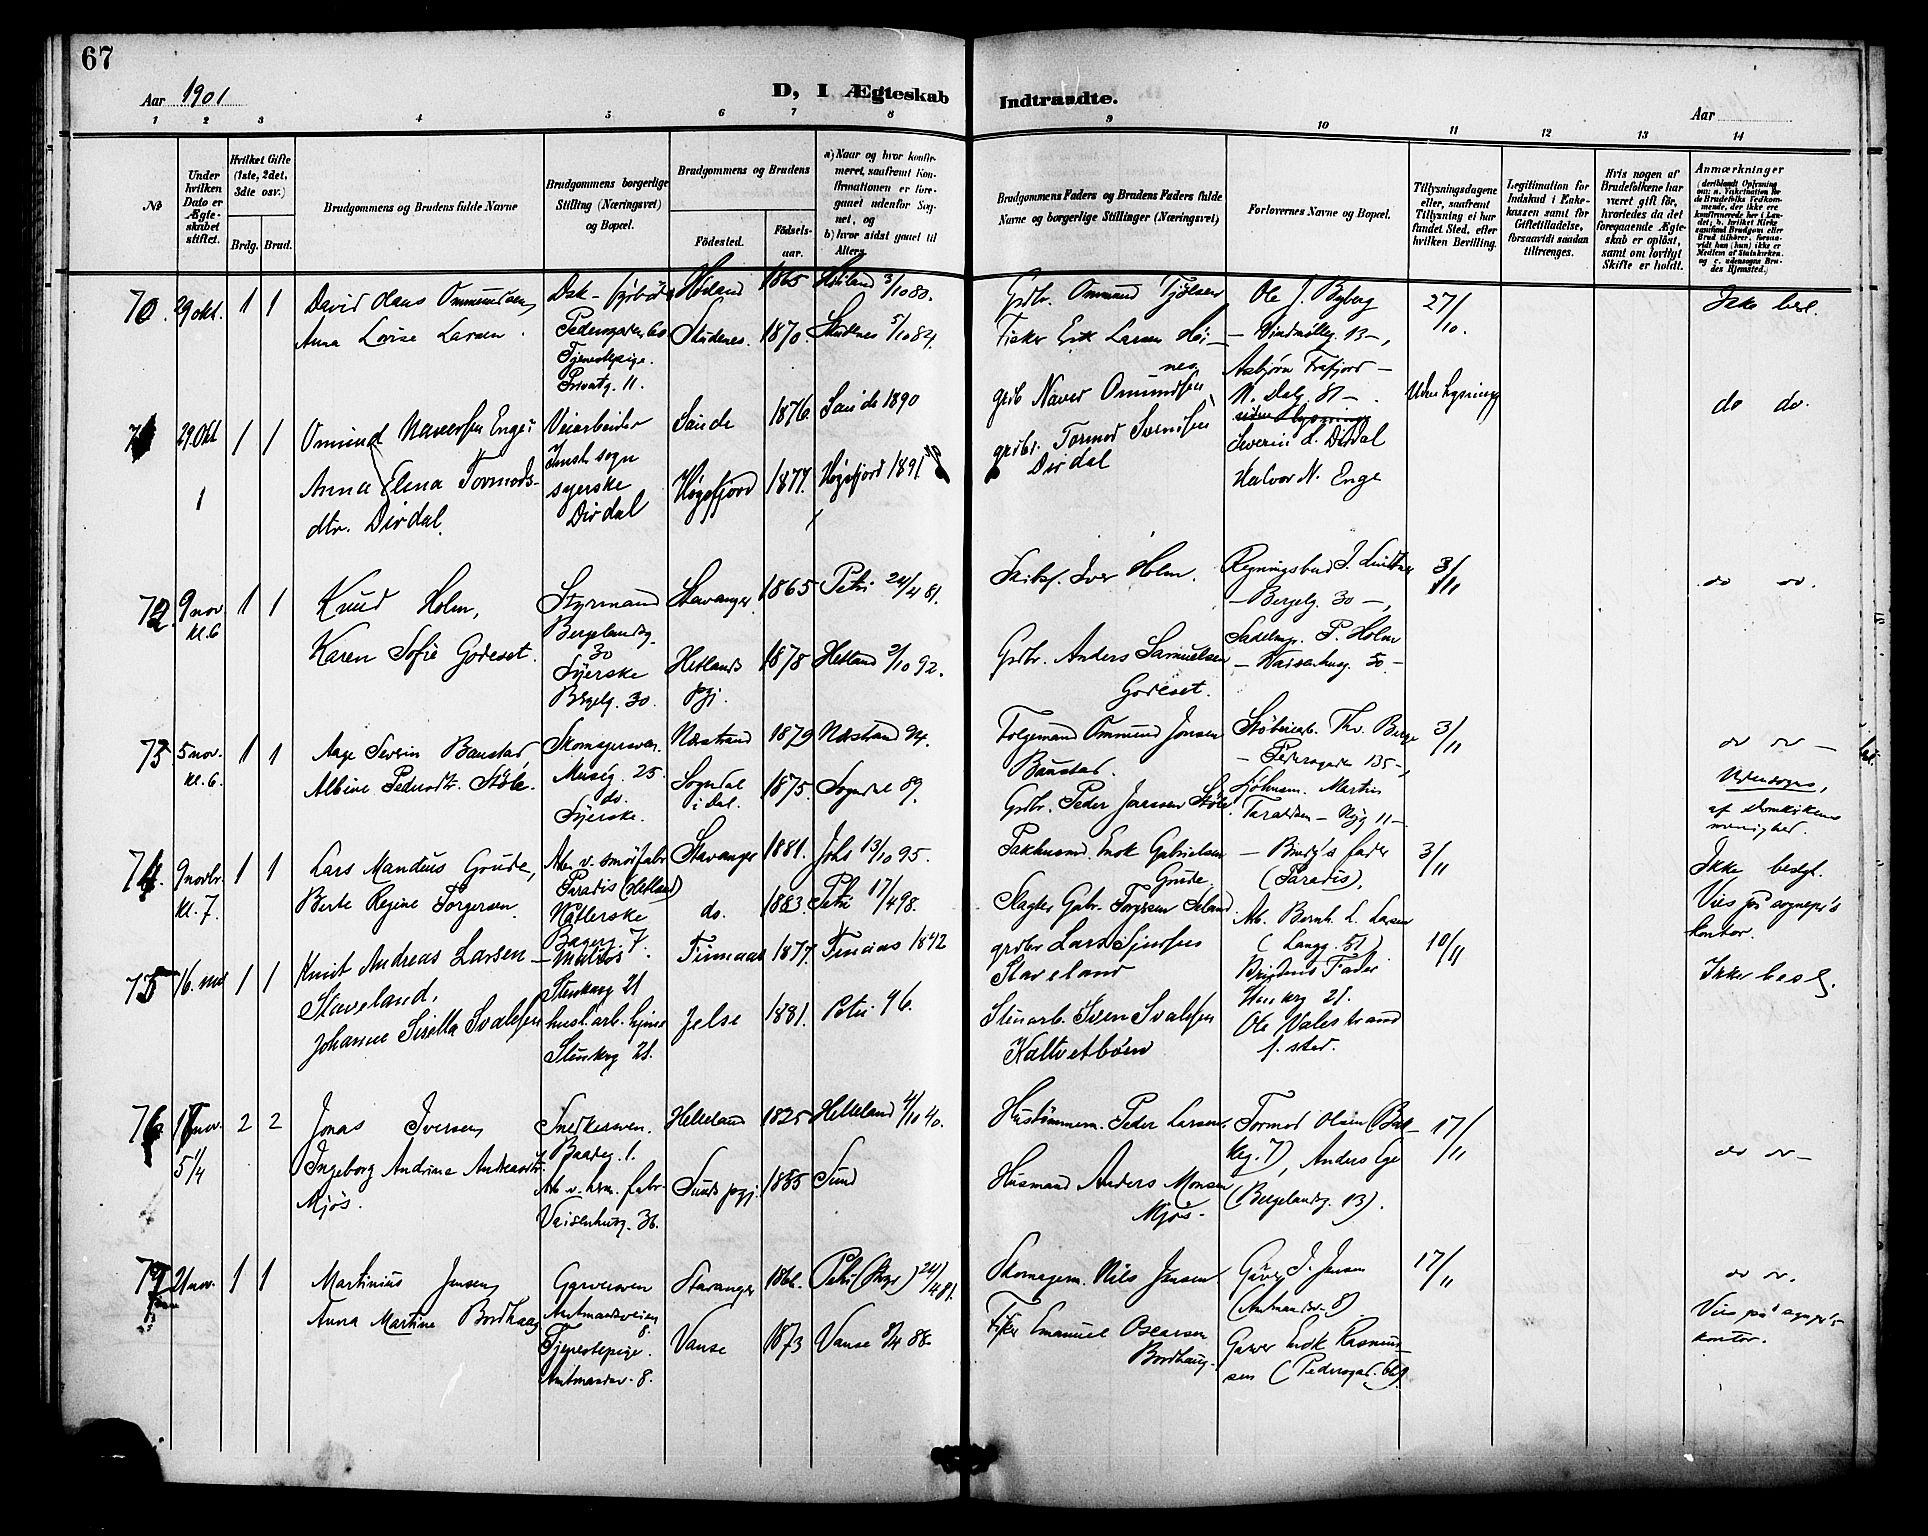 67
Aar 1901
D, I Ægteskab Indtrandte.
Aar
1 2 3 4 5 6 7 8 9 10 11 12 13 14
No
Under hvilken Dato er Ægteskabet stiftet.
Hvilket Gifte (1ste, 2det, 3die osv.)
Brdg. Brud.
Brudgommens og Brudens fulde Navne
Brudgommens borgerlige Stilling (Næringsvei) og Bopæl.
Brudgommens og Brudens
Fødested. Fødselsaar.
a) Naar og hvor konfirmeret, saafremt Konfirmationen er foregaaet udenfor Sognet, og
b) hvor sidst gaaet til Alters.
Brudgommens Faders og Brudens Faders fulde Navne og borgerlige Stillinger (Næringsvei)
Forlovernes Navne og Bopæl.
Tillysningsdagene eller, saafremt Tillysning ei har fundet Sted, efter hvilken Bevilling.
Legitimation for Indskud i Enkekassen samt for Giftetilladelse, forsaavidt saadan tiltrænges.
Hvis nogen af Brudefolkene har været gift før, hvorledes da det foregaaende Ægteskab er opløst, samt om lovligt Skifte er holdt.
Anmærkninger
70. 29 okt. 1 1
David Hans Ommundsen,
Anna Lovise Larsen.
Pedersgaden 60
Tjenestepige.
Privatg. 11.
Høiland 1865 Høiland 3/10 80.
Skudenes. 1870. Skudenes 5/10 84.
Grdbr. Ommund Tjølsen
Fisker Erik Larsen Høines
Ole J. Byberg
– Vindmølleg. 13 –,
Asbjørn Frafjord –
N. Dalg. 81 –.
27/10.
Ikke besl.
71 29 Okt 1 1
1
Ommund Naversen Enge
Anna Elina Tormodsdtr. Dirdal.
Veiarbeider
syerske
Dirdal
Sande 1876 Sande 1890
Høgsfjord 1877. Høgsfjord 1891
grdb Naver Omundsen
grdbr. Tormod Svensen
Dirdal
Severin L. Dirdal
Halvor N. Enge
Uden lysning
do do.
72. 9 nov. kl. 6 1 1
Knud Holm,
Karen Sofie Godeset.
Styrmand
Bergelandsg. 30
Syerske
Bergelg. 30.
Stavanger 1865 Petri 24/4 81.
Hetlands pgj. 1878 Hetland 2/10 92.
Skibsf. Iver Holm.
Grdbr. Anders Samuelsen
Godeset.
– Bergelg. 30 –,
Sadelmg. P. Holm
– Vaisenhusg. 50 –
3/11
do do.
73 5 nov. kl. 6. 1 1
Aage Severin Baustad,
Albine Pedersdtr. Støle.
Skomagersven.
Museg. 25.
do.
Syerske.
Næstrand 1879 Næstrand 94.
Sogndal i Dal. 1875. Sogndal 89.
Ommund Jonsen
Baustad.
Grdbr. Peder Jonassen Støle.
Støberiarb. Thv. Berge
– Pedersgaden 135 –,
Martin
Taraldsen – Nyg 11 –
3/11
do do –
Udensogns,
af domkirkens
menighed.
74. 9 novbr. kl. 7. 1 1
Lars Mandius Grude,
Berte Regine Torgersen.
Arb. v. smørfabr.
Paradis (Hetland)
Bagerg. 7.
Stavanger 1881. Johs 13/10 95.
do. 1883. Petri 17/4 98.
Pakhusmd. Enok Gabrielsen
Grude.
Slagter Gabr. Torgersen
– Brudg's fader
(Paradis),
Arb. Bernh. L. Larsen
(Langg. 51)
3/11
Ikke beslgt.
Vies på sognepr's
kontor.
75 16. nov 1 1
Knut Andreas Larsen
Staveland,
Johanne Sisilla Svalesen
Matros
Stenkarg 21
hust. arb. hjme
Stenkarg 21.
Finnaas 1877. Finnaas 1892
Jelse 1881. Petri 96.
grdbr Lars Sjursen
Staveland
Stenarb. Sven Svalesen
Kaltvetbøen
Brudens Fader
Stenkrg 21.
Ole Valestrand
s. sted.
10/11
Ikke besl.
76. 17 nov. 5 1/4 2 2
Jonas Iversen,
Ingeborg Andrine Andreasdtr.
Mjøs.
Snedkersven.
Baadeg. 1.
Arb v. herm. fabr.
Vaisenhusg. 36.
Helleland 1825 Helleland 4/10 40.
Sunds pgj. 1855 Sund
Hustømmerm. Peder Larsen.
Husmand Anders Monsen
Mjøs.
Tormod Olsen (Bakkeg. 7), Anders Ege
(Bergelandsg. 13).
17/11
do do –
77 21 nov. 1 1
Martinius Jensen,
Anna Martine Bordhaug
Garversven
Amtmandsveien 8.
Tjenestepige.
Amtmandsv. 8.
Stavanger 1866. Petri 24/4 81.
Vanse 1873 Vanse 8/4 88.
Skomagerm. Nils Jensen
Fisker Emanuel Oscarsen
Bordhaug.
Garver J. Jensen
(Amtmandsv. 8).
Garver Enok Rasmussen (Pedersgad.
17/11
do do.
Vies på sognepr's
kontor.